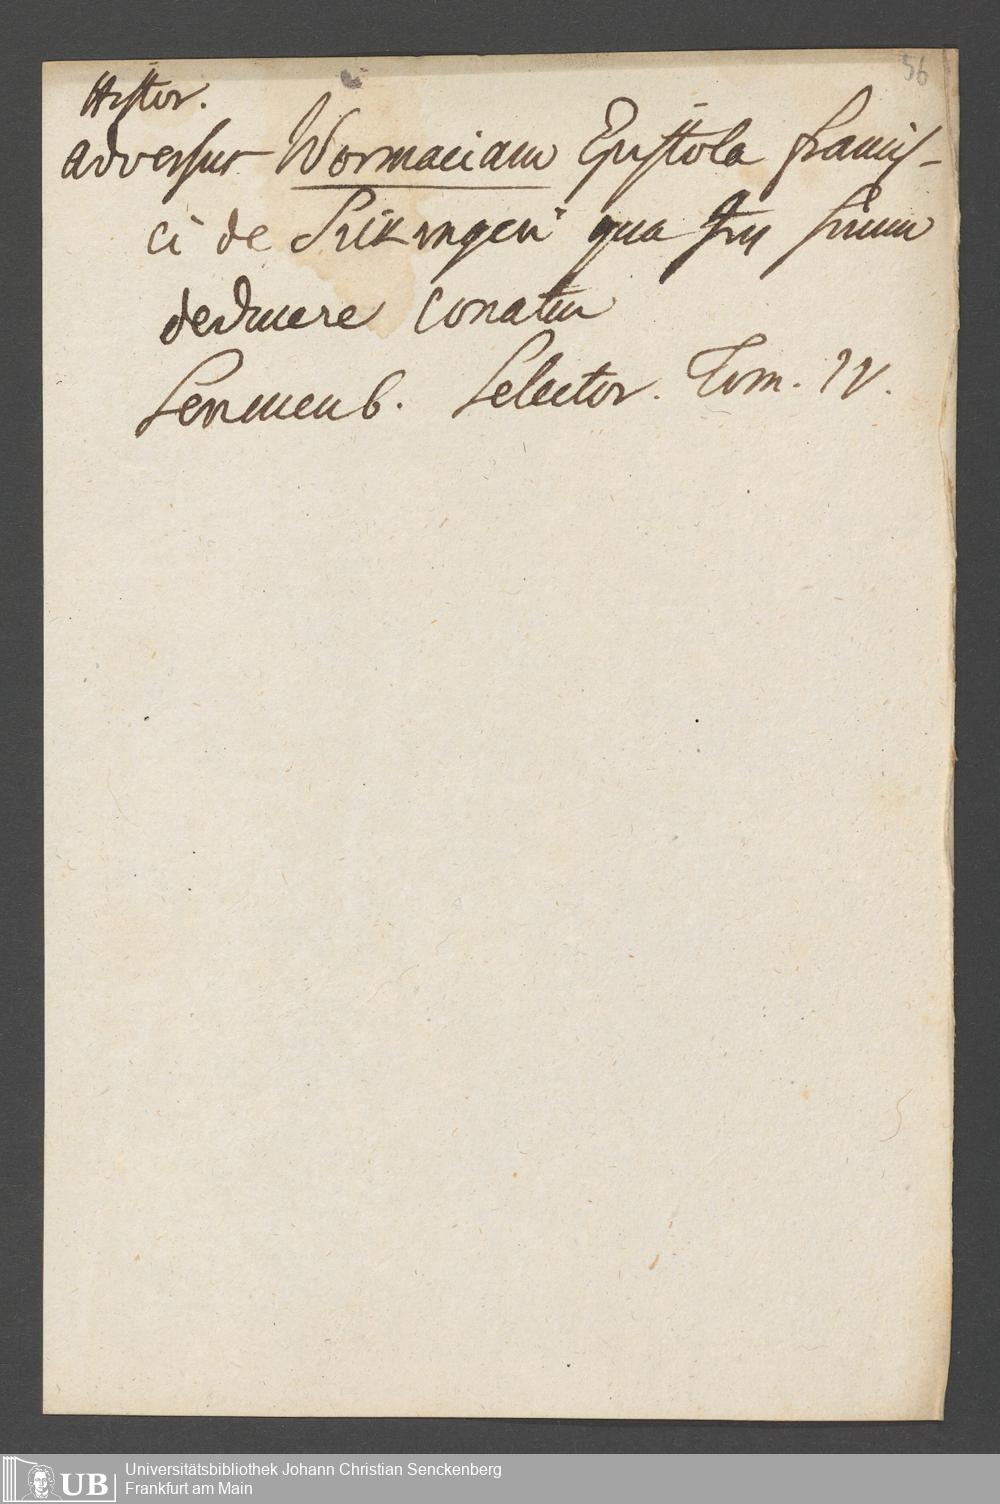 56
Histor.
adversus Wormaciam Epistola Francis-
ci de Sickingen qua
deducere conatur
Senckenb. Selector. Tom. IV.
UB
Universitätsbibliothek Johann Christian Senckenberg
Frankfurt am Main